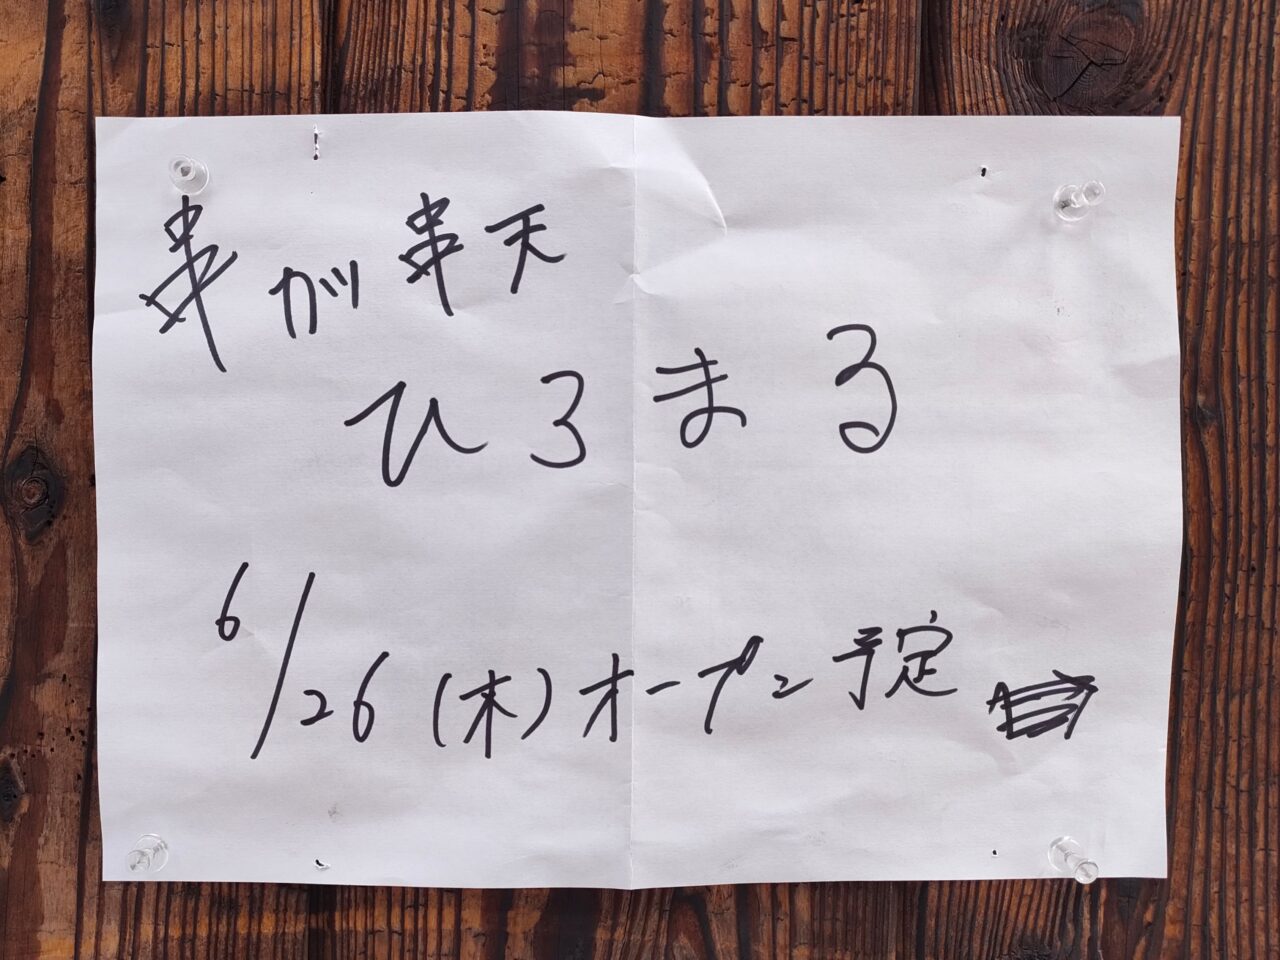 串カツ串天
ひろまる
6/26(木)オープン予定